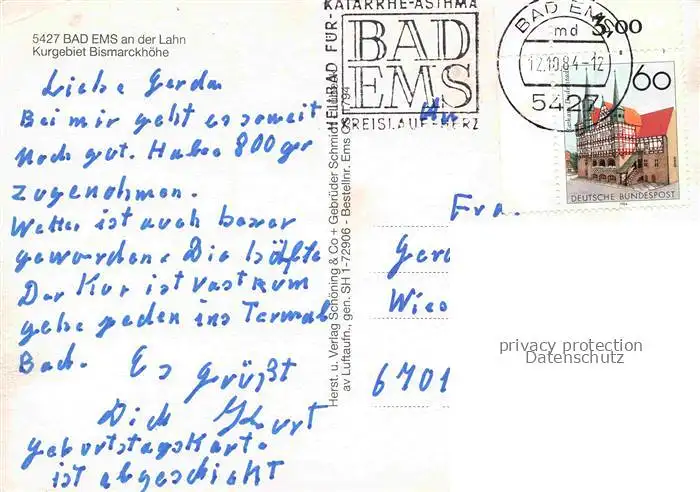 5427 BAD EMS an der Lahn
Kurgebiet Bismarckhöhe
Liebe Gerda
Bei mir geht es soweit
Noch gut. Habe 800 gr
zugenohmen.
Wetter ist auch besser
geworden. Die hälfte
Der Kur ist vast rum
gehe jeden ins Termal
Bad. Es grüßt
Dich
geburtstagskarte
ist abgeschickt
Herst. u. Verlag Schöning & Co + Gebrüder Schmidt
av Luftaufn., gen. SH 1-72906 - Bestellnr. Ems
KATARRHE-ASTHMA
HEILBAD FÜR
BAD
EMS
KREISLAUF-HERZ
BAD EMS
md
12.10.84-12
5427
60
DEUTSCHE BUNDESPOST
An
Fra.
Gerd
Wies
6701
privacy protection
Datenschutz